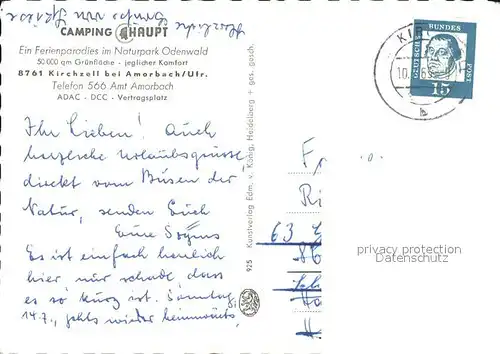 Herzliche
Grüße von
CAMPING HAUPT
Ein Ferienparadies im Naturpark Odenwald
50.000 qm Grünfläche - jeglicher Komfort
8761 Kirchzell bei Amorbach/Ufr.
Telefon 566 Amt Amorbach
ADAC - DCC - Vertragsplatz
Ihr Lieben! Auch
herzliche Urlaubsgrüsse
direkt vom Busen der
Natur, senden Euch
Eure
Es ist einfach herrlich
hier nur schade, dass
es so kurz ist. Sonntag,
14.7., gehts wieder heimwärts.
925 Kunstverlag Edm. v. König, Heidelberg + ges. gesch.
DEUTSCHE BUNDESPOST
15
10.
b
63
privacy protection
Datenschutz